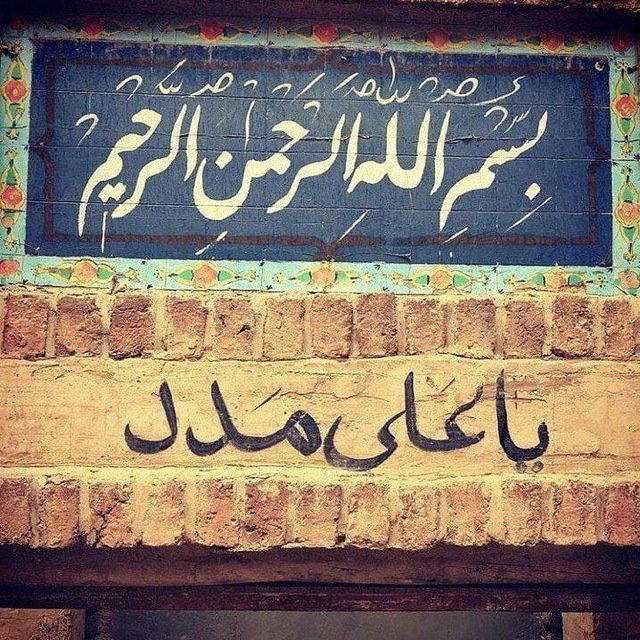 بِسْمِ اللهِ الرَّحْمٰنِ الرَّحیْمِ
یا عَلی مَدَد